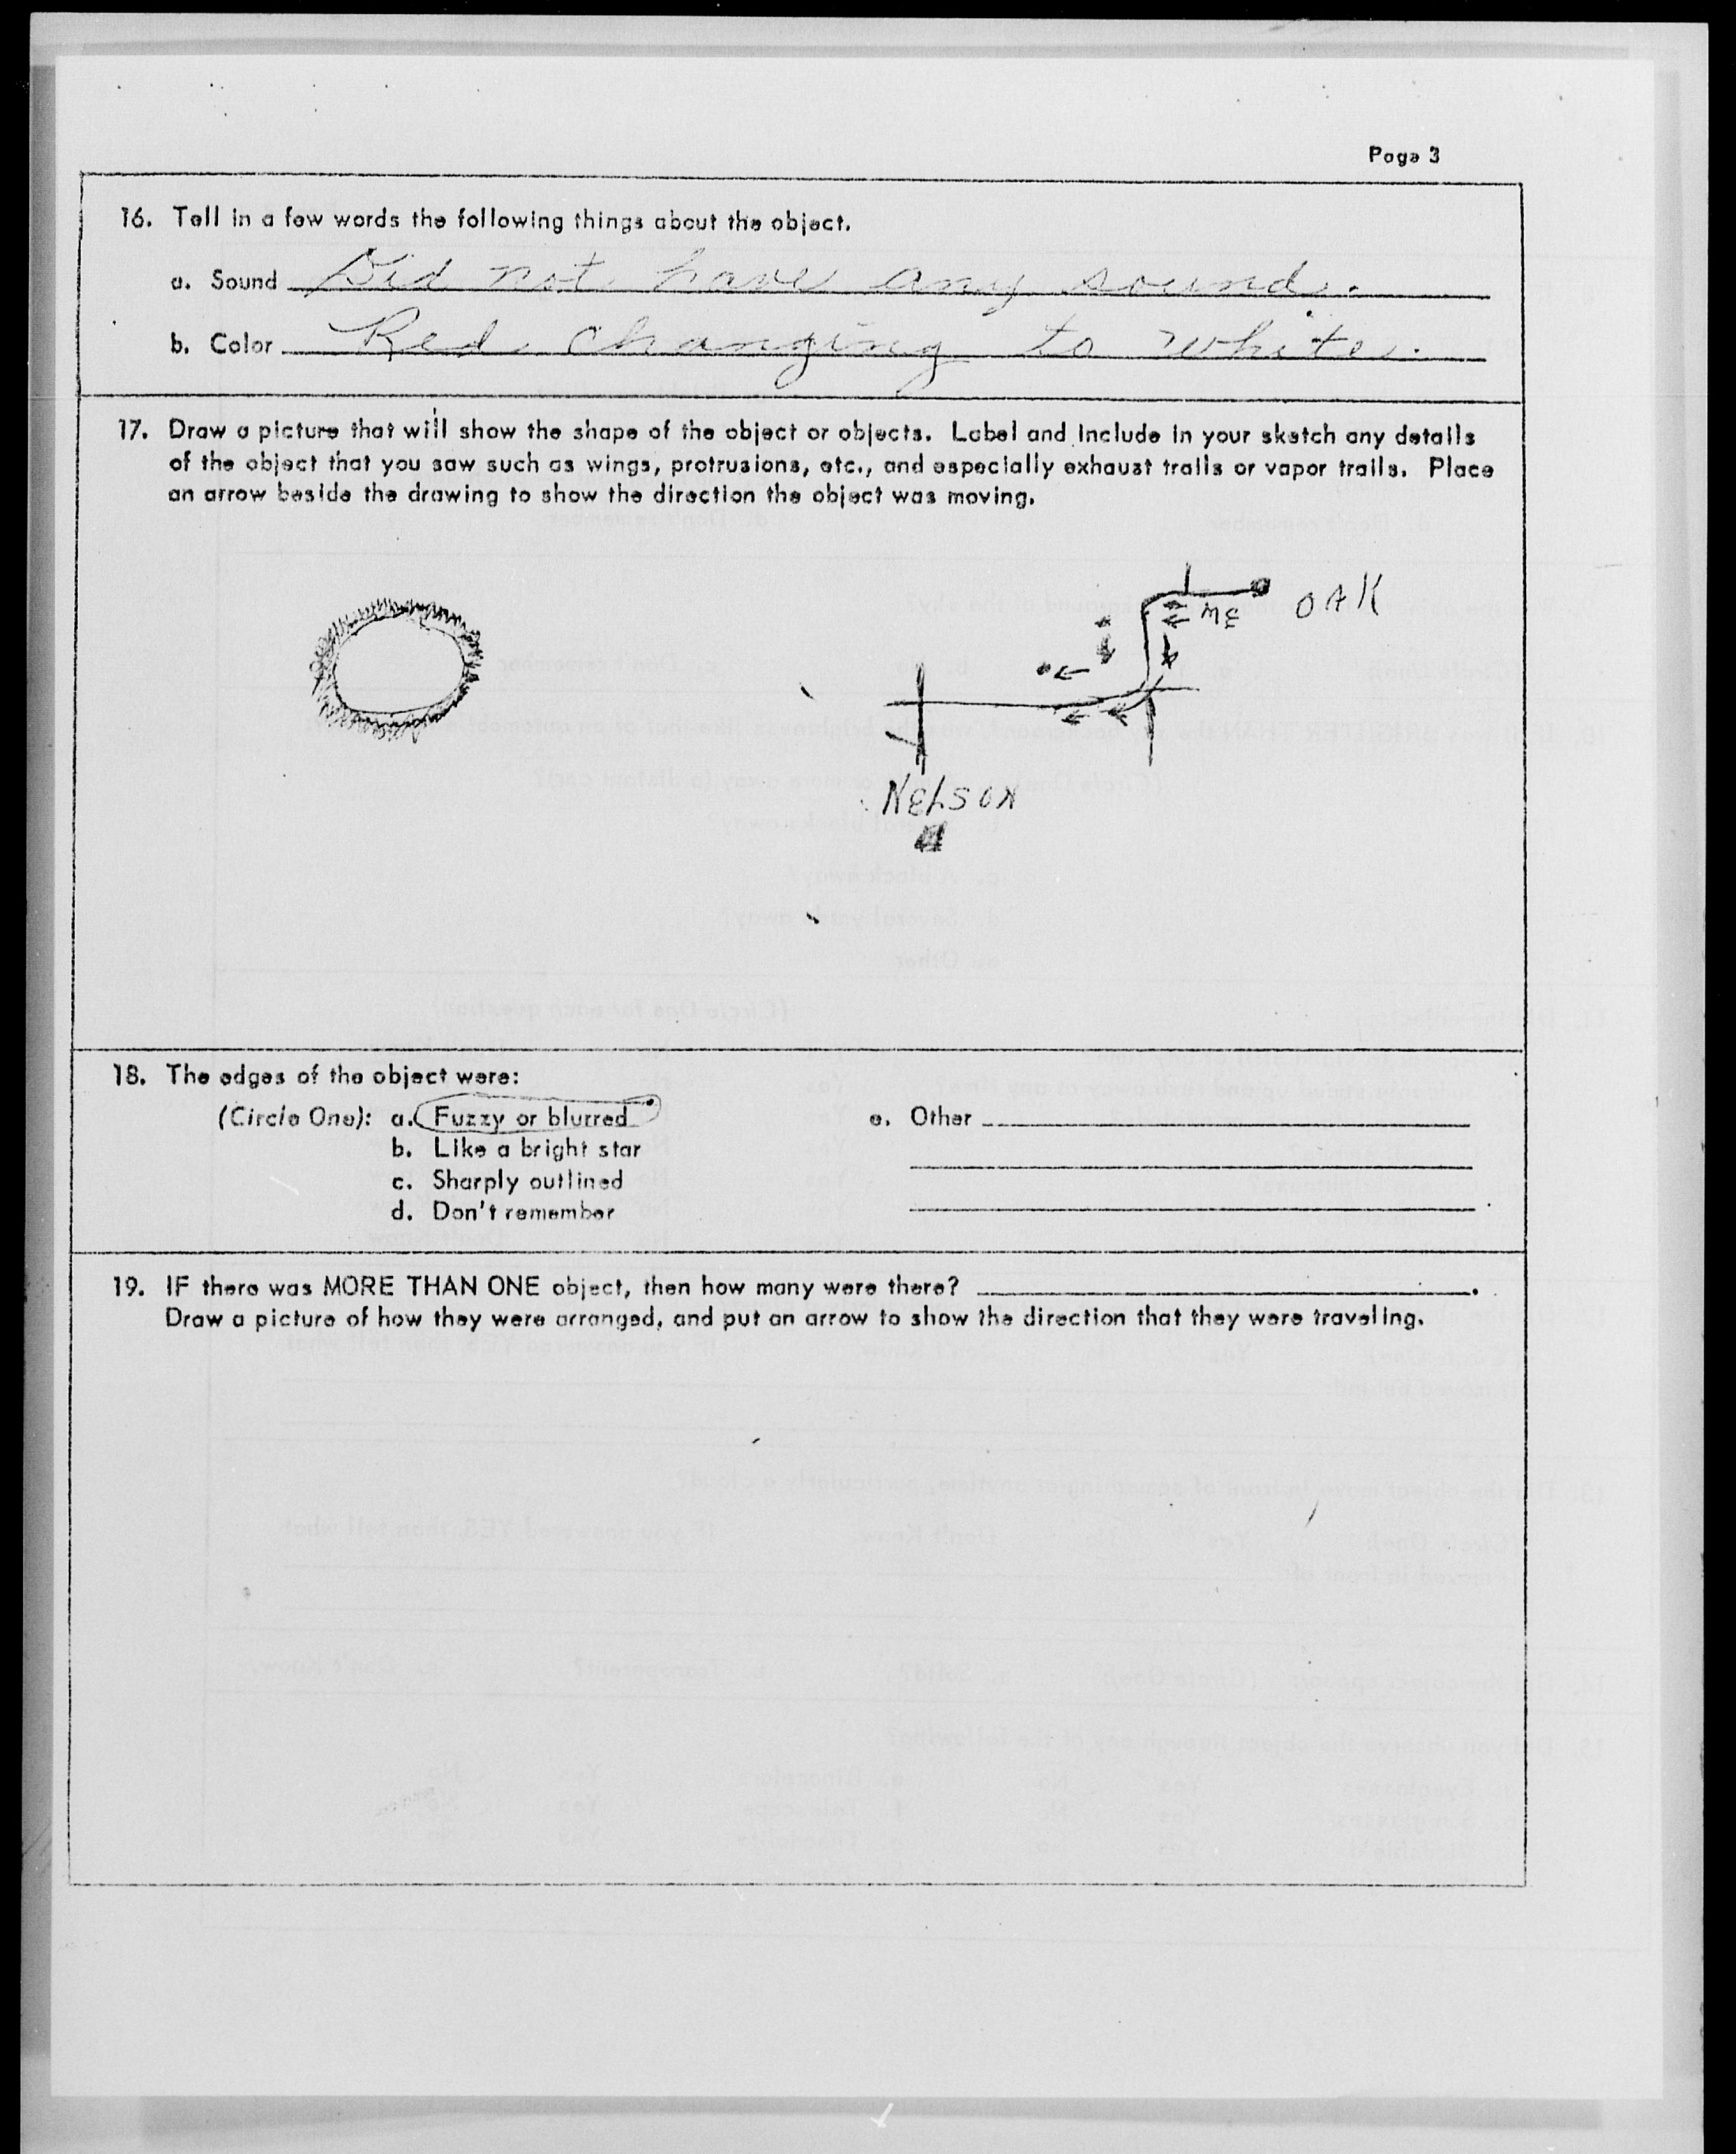 Page 3
16. Tell in a few words the following things about the object.
a. Sound Did not have any sound.
b. Color Red changing to white.
17. Draw a picture that will show the shape of the object or objects. Label and include in your sketch any details
of the object that you saw such as wings, protrusions, etc., and especially exhaust trails or vapor trails. Place
an arrow beside the drawing to show the direction the object was moving.
OAK
ME
NELSON
18. The edges of the object were:
(Circle One): a. Fuzzy or blurred
b. Like a bright star
c. Sharply outlined
d. Don't remember
e. Other
19. IF there was MORE THAN ONE object, then how many were there? .
Draw a picture of how they were arranged, and put an arrow to show the direction that they were traveling.